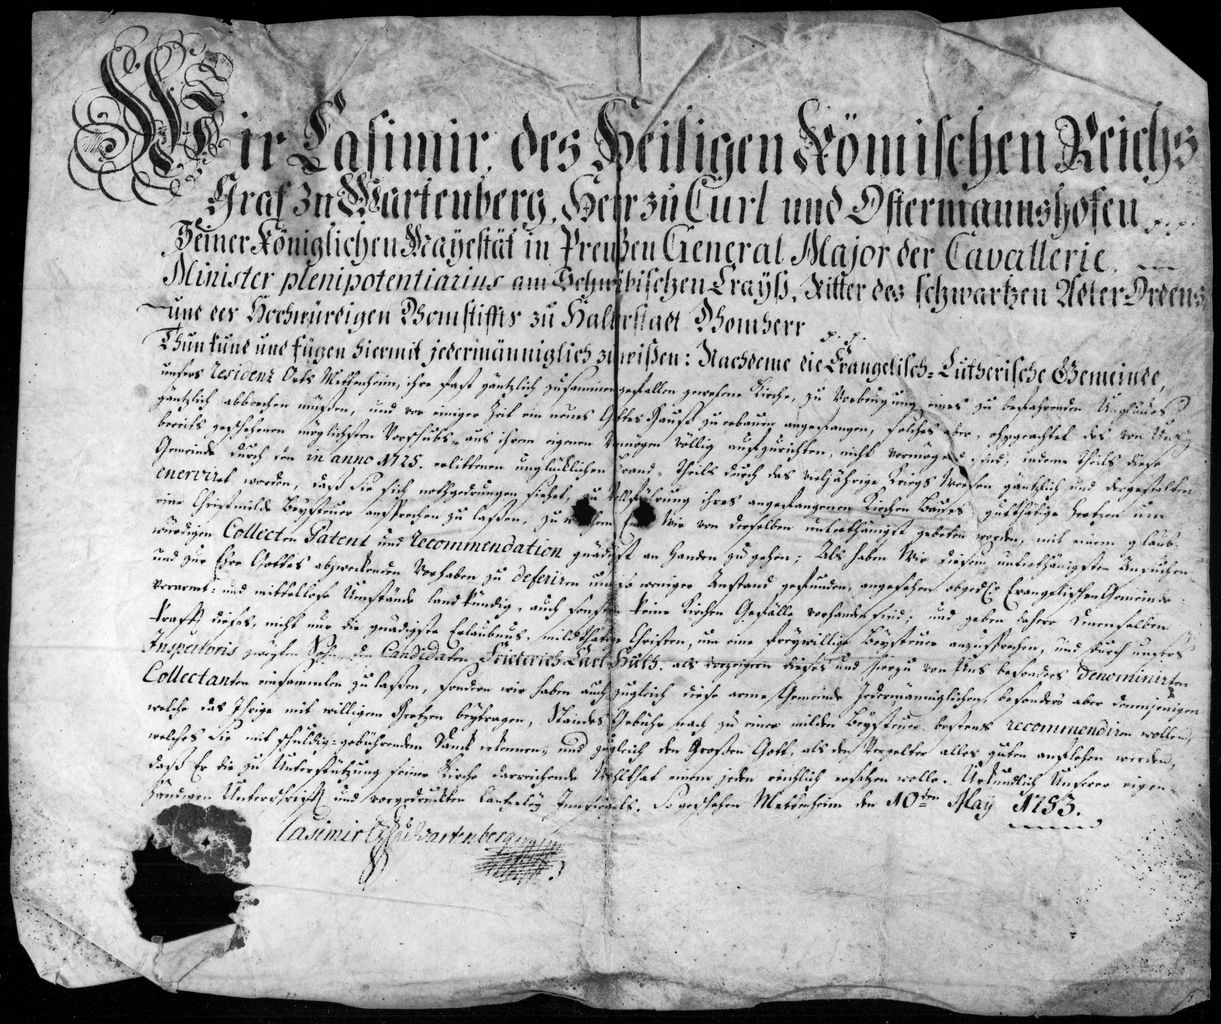 Wir Casimir, des Heiligen Römischen Reichs
Graf zu Wartenberg, Herr zu Curl und Ostermannshofen p.p.
Seiner Königlichen Mayestät in Preußen General Major der Cavallerie,
Minister plenipotentiarius am Schwäbischen Crayß, Ritter des schwartzen Adler Ordens
und des Hochwürdigen Domstiffts zu Halberstadt Domherr p.p.
Thun kund und fügen hiermit jedermänniglich zu wißen: Nachdeme die Evangelisch-Lutherische Gemeinde,
unsers Residenz Orts Mettenheim, ihre fast gäntzlich zusammen gefallen gewesene Kirche, zu Vorbeugung eines zu befahrenden Unglücks
gäntzlich abbrechen müßen, und vor einiger Zeit ein neues Gottes Hauß zu erbauen angefangen, solches aber, ohngeachtet des von Uns
bereits geschehenen möglichsten Vorschubs, aus ihrem eigenen Vermögen völlig aufzurichten, nicht vermögend sind, indeme theils diese
Gemeinde durch den in anno 1725. erlittenen unglücklichen Brand, theils durch das vieljährige Kriegs Wesen gäntzlich und dergestalten
enervirt worden, daß Sie sich nothgedrungen siehet, zu Vollführung ihres angefangenen Kirchen Baues, gutthätige Hertzen um
eine Christmilde Beysteuer ansprechen zu laßen, zu welchem Ende Wir von derselben unterthänigst gebetten worden, mit einem glaub-
würdigen Collecten Patent und recommendation gnädigst an Handen zu gehen; Als haben Wir diesem unterthänigsten Ansuchen
und zur Ehre Gottes abzweckenden Vorhaben zu deferiren um so weniger Anstand gefunden, angesehen obged. Evangelischen Gemeinde
verarmt- und mittellose Umstände landkündig, auch sonsten keine Kirchen Gefälle vorhanden sind; und geben daher denenselben
Krafft dieses, nicht nur die gnädigste Erlaubnus, mildthätige Christen, um eine freywillige Beysteuer anzusprechen, und durch unsers
Inspectoris zweyten Sohn, den Candidaten Friederich Carl Huth, als vorzeigern dieses und hierzu von Uns besonders denominirten
Collectanten einsammlen zu laßen, sondern wir haben auch zugleich diese arme Gemeinde Jedermänniglichen, besonders aber denenjenigen
welche das Ihrige mit willigem Hertzen beytragen, Standes Gebühr nach zu einer milden Beysteuer bestens recommendiren wollen,
welches Sie mit schuldig-gebührendem Danck erkennen, und zugleich den Großen Gott, als den Vergelter alles guten anflehen werden,
daß Er die zu Unterstützung seiner Kirche darreichende Wohlthat einem jeden reichlich ersetzen wolle. Urkundlich Unserer eigen-
händigen Unterschrifft und vorgedruckten Cantzley Innsiegels. So geschehen Mettenheim den 10ten May 1753.
Casimir Gf zu Wartenberg